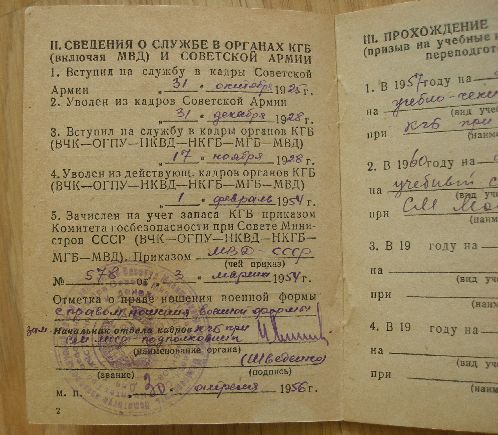 II. СВЕДЕНИЯ О СЛУЖБЕ В ОРГАНАХ КГБ
(включая МВД) И СОВЕТСКОЙ АРМИИ
1. Вступил на службу в кадры Советской
Армии „31" октября 1925 г.
2. Уволен из кадров Советской Армии
„31" декабря 1928 г.
3. Вступил на службу в кадры органов КГБ
(ВЧК—ОГПУ—НКВД—НКГБ—МГБ—МВД)
„17" ноября 1928 г.
4. Уволен из действующ. кадров органов КГБ
(ВЧК—ОГПУ—НКВД—НКГБ—МГБ—МВД)
„1" февраль 1954 г.
5. Зачислен на учет запаса КГБ приказом
Комитета госбезопасности при Совете Мини-
стров СССР (ВЧК—ОГПУ—НКВД—НКГБ—
МГБ—МВД). Приказом МВД-СССР
(чей приказ)
№ 578 от „3" марта 1954 г.
Отметка о праве ношения военной формы
с правом ношения военной формы
зам. Начальник отдела кадров КГБ при
СМ МССР подполковник
(наименование органа)
(звание) (подпись)
м. п. „30" апреля 1956 г.
2
III. ПРОХОЖДЕНИЕ
(призыв на учебные
переподгото
1. В 1957 году на
на учебно-
(вид уче
при КГБ при
(наим
2. В 1960 году на
на учебный
(вид уч
при СМ
(наим
3. В 19 году на
на
(вид уч
при
(наим
4. В 19 году на
на
(вид уч
при
(наим